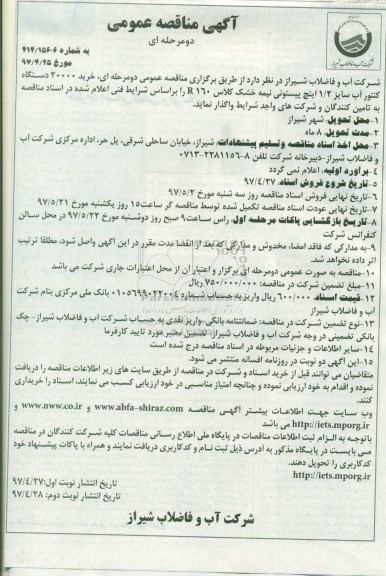 آگهی مناقصه عمومی
دومرحله ای
به شماره ۴۱۴/۱۵۶۰۶
مورخ ۹۷/۴/۲۵
شرکت آب و فاضلاب شیراز
شرکت آب و فاضلاب شیراز در نظر دارد از طریق برگزاری مناقصه عمومی دومرحله ای، خرید ۲۰۰۰۰ دستگاه
کنتور آب سایز ۱/۲ اینچ پیستونی نیمه خشک کلاس R ۱۶۰ را براساس شرایط فنی اعلام شده در اسناد مناقصه
به تامین کنندگان و شرکت های واجد شرایط واگذار نماید.
۱-محل تحویل: شهر شیراز
۲-مدت تحویل: ۸ ماه
۳-محل اخذ اسناد مناقصه وتسلیم پیشنهادات: شیراز، خیابان ساحلی شرقی، پل حر، اداره مرکزی شرکت آب
و فاضلاب شیراز-دبیرخانه شرکت تلفن ۸-۰۷۱۳۲۲۸۱۱۵۶
۴-برآورد اولیه: اعلام نمی گردد
۵-تاریخ شروع فروش اسناد: ۹۷/۴/۲۷
۶-تاریخ نهایی فروش اسناد مناقصه روز سه شنبه مورخ ۹۷/۵/۲
۷-تاریخ نهایی عودت اسناد مناقصه تکمیل شده توسط مناقصه گر ساعت ۱۵ روز یکشنبه مورخ ۹۷/۵/۲۱
۸-تاریخ بازگشایی پاکات مرحله اول: راس ساعت ۹ صبح روز دوشنبه مورخ ۹۷/۵/۲۲ در محل سالن
کنفرانس شرکت
۹-به مدارکی که فاقد امضاء، مخدوش و مدارکی که بعد از انقضا مدت مقرر در این آگهی واصل شود، مطلقا ترتیب
اثر داده نخواهد شد.
۱۰-مناقصه به صورت عمومی دومرحله ای برگزار و اعتبار آن از محل اعتبارات جاری شرکت می باشد
۱۱-مبلغ تضمین شرکت در مناقصه: ۷۵۰/۰۰۰/۰۰۰ ریال
۱۲-قیمت اسناد: ۶۰۰/۰۰۰ ریال واریز به حساب شماره ۰۱۰۵۶۹۹۰۲۲۰۰۶ بانک ملی مرکزی بنام شرکت
آب و فاضلاب شیراز
۱۳-نوع تضمین شرکت در مناقصه: ضمانتنامه بانکی-واریز نقدی به حساب شرکت آب و فاضلاب شیراز-چک
بانکی تضمینی در وجه شرکت آب و فاضلاب شیراز-تضمین معتبر مورد تایید کارفرما
۱۴-سایر اطلاعات و جزئیات مربوطه در اسناد مناقصه درج شده است
۱۵-این آگهی دو نوبت در روزنامه افسانه منتشر می شود.
متقاضیان می توانند قبل از خرید اسناد و شرکت در مناقصه از طریق سایت های زیر اطلاعات مناقصه را دریافت
نموده و اقدام به خود ارزیابی نموده و چنانچه امتیاز مناسبی در خود ارزیابی کسب می نمایند، اسناد را خریداری
کنند.
وب سایت جهت اطلاعات بیشتر آگهی مناقصه www.abfa-shiraz.com و www.nww.co.ir و
http://iets.mporg.ir می باشد
باتوجه به الزام ثبت اطلاعات مناقصات در پایگاه ملی اطلاع رسانی مناقصات کلیه شرکت کنندگان در مناقصه
می بایست در پایگاه مذکور به آدرس ذیل ثبت نام و کدکاربری دریافت نمایند و همراه با پاکات پیشنهاد خود
کدکاربری را تحویل دهند.
http://iets.mporg.ir
تاریخ انتشار نوبت اول: ۹۷/۴/۲۷
تاریخ انتشار نوبت دوم: ۹۷/۴/۲۸
شرکت آب و فاضلاب شیراز